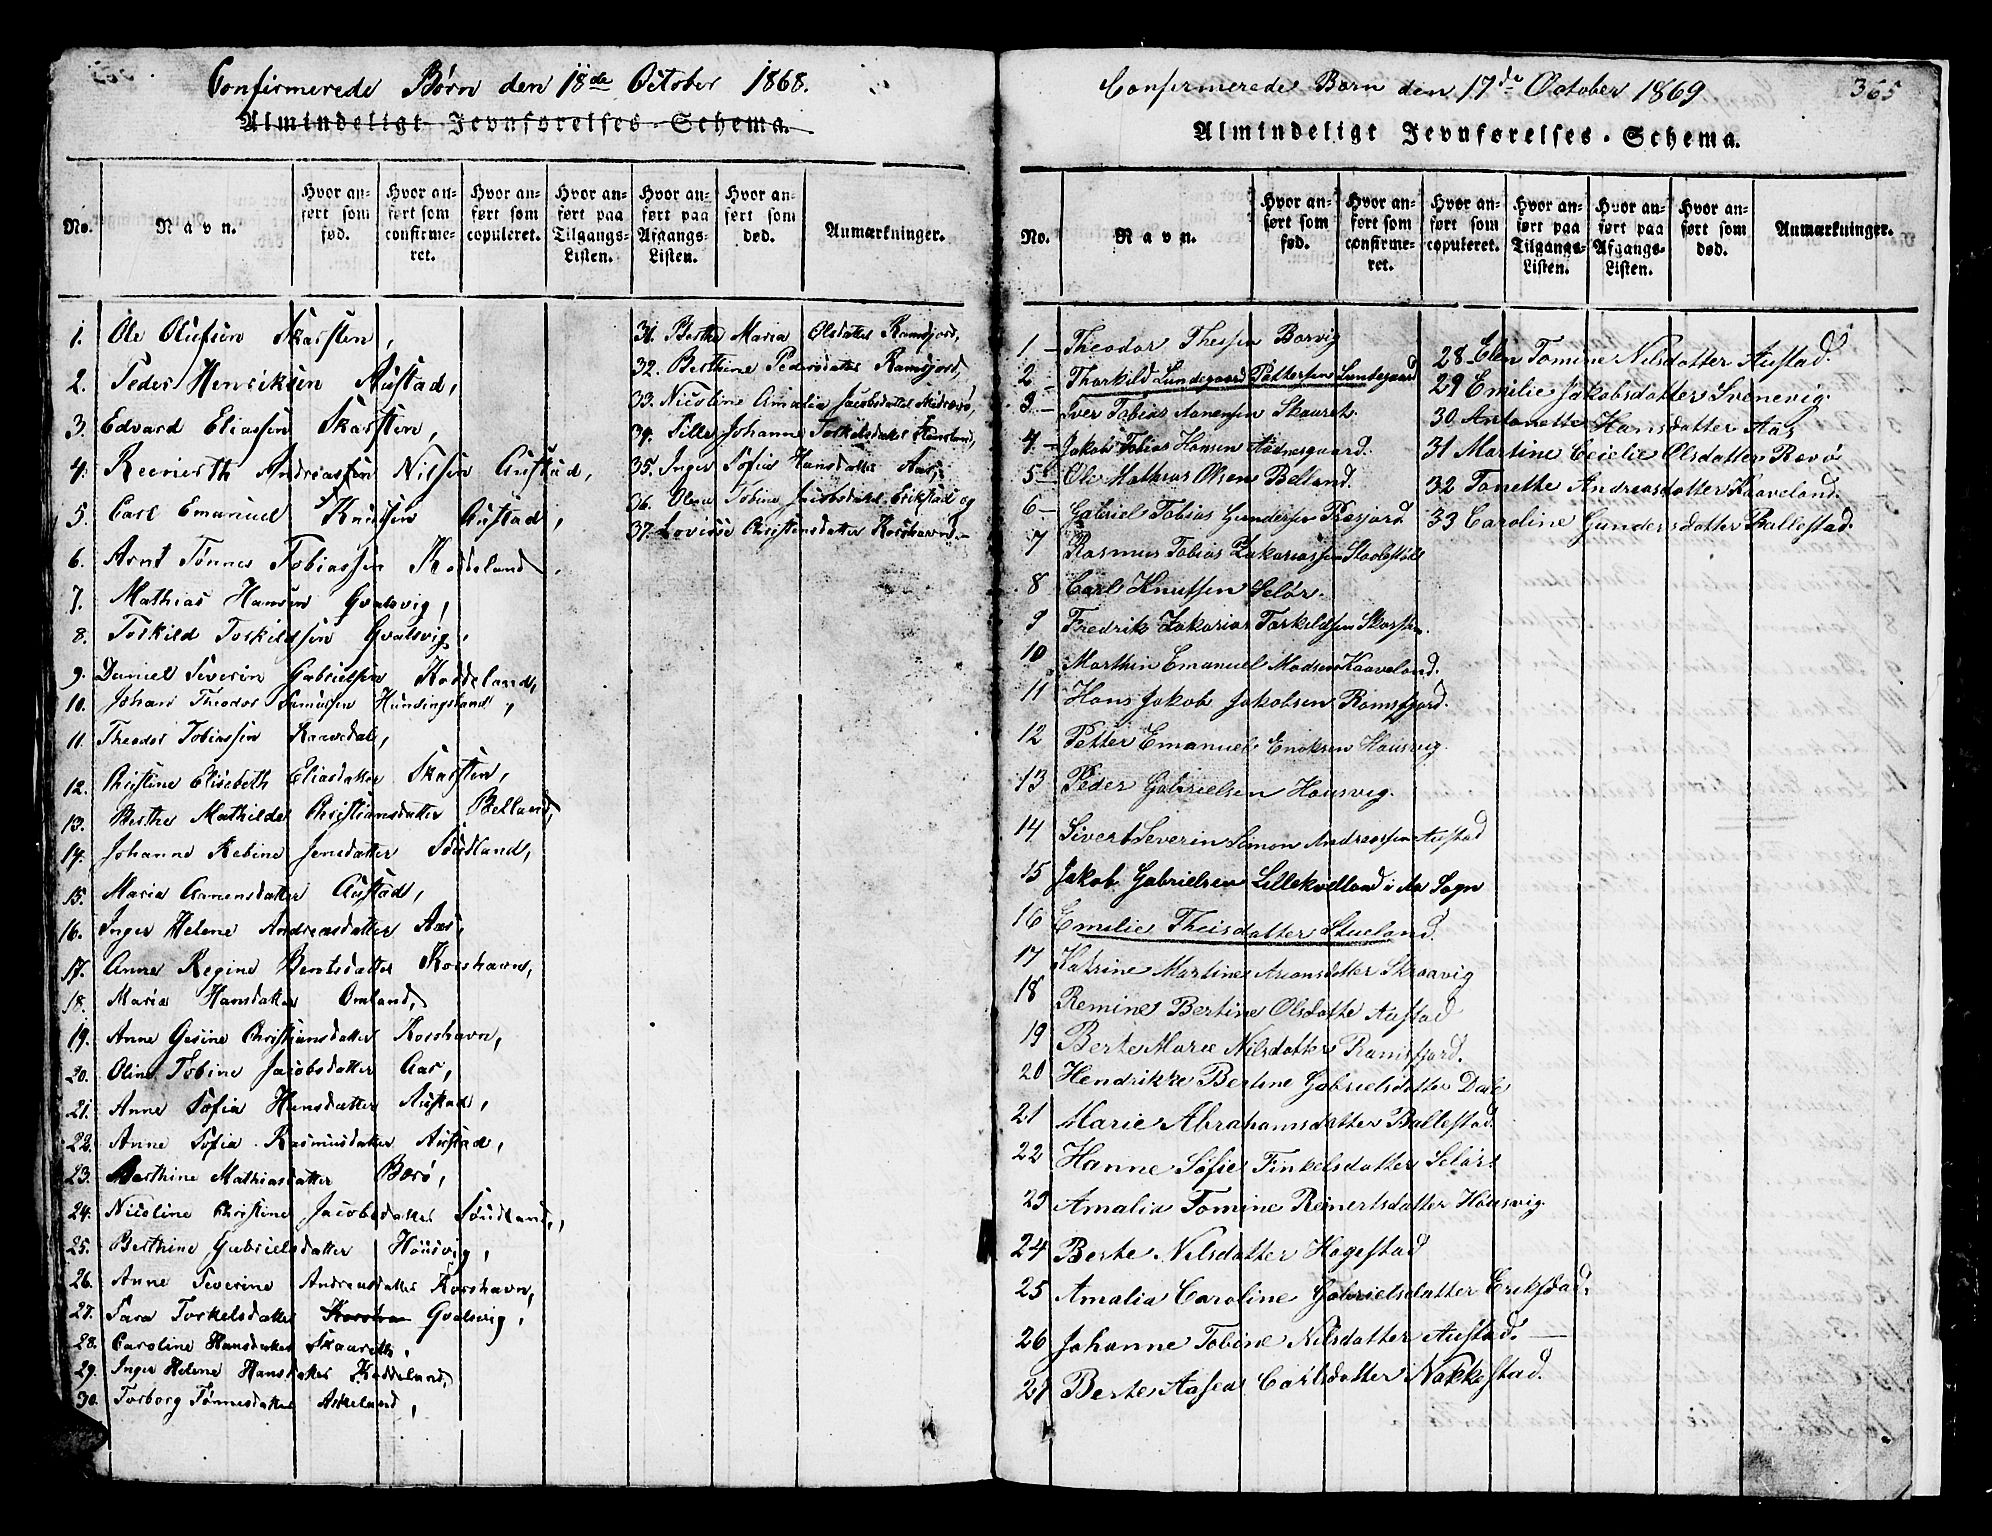 Confirmerede Børn den 18de October 1868.
Almindeligt Jevnførelses-Schema.
No.
Navn.
Hvor anført som fød.
Hvor anført som confirmeret.
Hvor anført som copuleret.
Hvor anført paa Tilgangs-Listen.
Hvor anført paa Afgangs-Listen.
Hvor anført som død.
Anmærkninger.
1. Ole Olufsen Skarsten,
2. Peder Henriksen Austad,
3. Edvard Eliassen Skarsten,
4. Reinerth Andreassen Nilsen Austad,
5. Carl Emanuel Knutsen Austad,
6. Arnt Tønnes Tobiassen Koddeland,
7. Mathias Hansen Gvalsvig,
8. Torkild Torkildsen Gvalsvig,
9. Daniel Severin Gabrielsen Koddeland,
10. Johan Theodor Hunsingsland,
11. Theodor Tobiassen Kaavedal,
12. Christine Elisebeth Eliasdatter Skarsten,
13. Berthe Mathilde Christiansdatter Belland,
14. Johanne Rebine Jensdatter Sandland,
15. Maria Aanensdatter Austad,
16. Inger Helene Andreasdatter Aas,
17. Anne Regine Berntsdatter Korshavn,
18. Maria Hansdatter Omland,
19. Anne Gesine Christiansdatter Korshavn,
20. Oline Tobine Jacobsdatter Aas,
21. Anne Sofia Hansdatter Austad,
22. Anne Sofia Rasmusdatter Austad,
23. Berthine Mathiasdatter Borø,
24. Nicoline Christine Jacobsdatter Sandland,
25. Berthine Gabrielsdatter Housvig,
26. Anne Severine Andreasdatter Korshavn,
27. Sara Torkelsdatter Korshavn Gvalsvig,
28. Caroline Hansdatter Skaureth,
29. Inger Helene Hansdatter Koddeland,
30. Torborg Tønnesdatter Askeland,
31. Berthe Maria Olsdatter Ramsfjord,
32. Berthine Pedersdatter Ramsfjord,
33. Nicoline Amalia Jacobsdatter
34. Sille Johanne Torkelsdatter
35. Inger Sofia Hansdatter Aas,
36. Olene Tobine Jacobsdatter Erikstad og
37. Lovisse Christensdatter Korshavn.
Confirmerede Børn den 17de October 1869
365
Almindeligt Jevnførelses-Schema.
No.
Navn.
Hvor anført som fød.
Hvor anført som confirmeret.
Hvor anført som copuleret.
Hvor anført paa Tilgangs-Listen.
Hvor anført paa Afgangs-Listen.
Hvor anført som død.
Anmærkninger.
1 – Theodor Thessen Borvig
2 – Thorkild Lundegaard Pettersen Lundegaard
3 – Iver Tobias Aanensen Skauret
4 – Jakob Tobias Hansen Aadnesgaard
5 – Ole Mathias Olsen Belland.
6 – Gabriel Tobias Gundersen Rosfjord
7 Rasmus Tobias Zakariassen
8 Carl Knutsen Selør.
9 Fredrik Zakarias Torkildsen Skarsten.
10 Marthin Emanuel Madsen Kaaveland.
11 Hans Jakob Jakobsen Ramsfjord.
12 Petter Emanuel Enoksen Housvig.
13 Peder Gabrielsen Housvig.
14 Sivert Severin Simon Andreassen Austad
15 Jakob Gabrielsen Lillekvelland i Aa Sogn
16 Emilie Theisdatter Stueland.
17 Katrine Martine Aronsdatter Skraavig
18 Remine Bertine Olsdatte Austad
19 Berte Marie Nilsdatter Ramsfjord.
20 Hendrikke Bertine Gabrielsdatter Dale
21 Marie Abrahamsdatter Ballestad
22 Hanne Sofie Tinkelsdatter Selør.
23 Amalia Tomine Reinertsdatter Housvig
24 Berte Nilsdatter Hagestad
25 Amalia Caroline Gabrielsdatter Erikstad.
26 Johanne Tobine Nilsdatter Austad.
27 Berte Aasea Carlsdatter Nakkestad.
28 Elen Tomine Nilsdatter Austad.
29 Emilie Jakobsdatter Svenevig.
30 Antonette Hansdatter Aas
31 Martine Ceielie Olsdatter Revø
32 Tonette Andreasdatter Kaaveland.
33 Caroline Gundersdatter Ballestad.